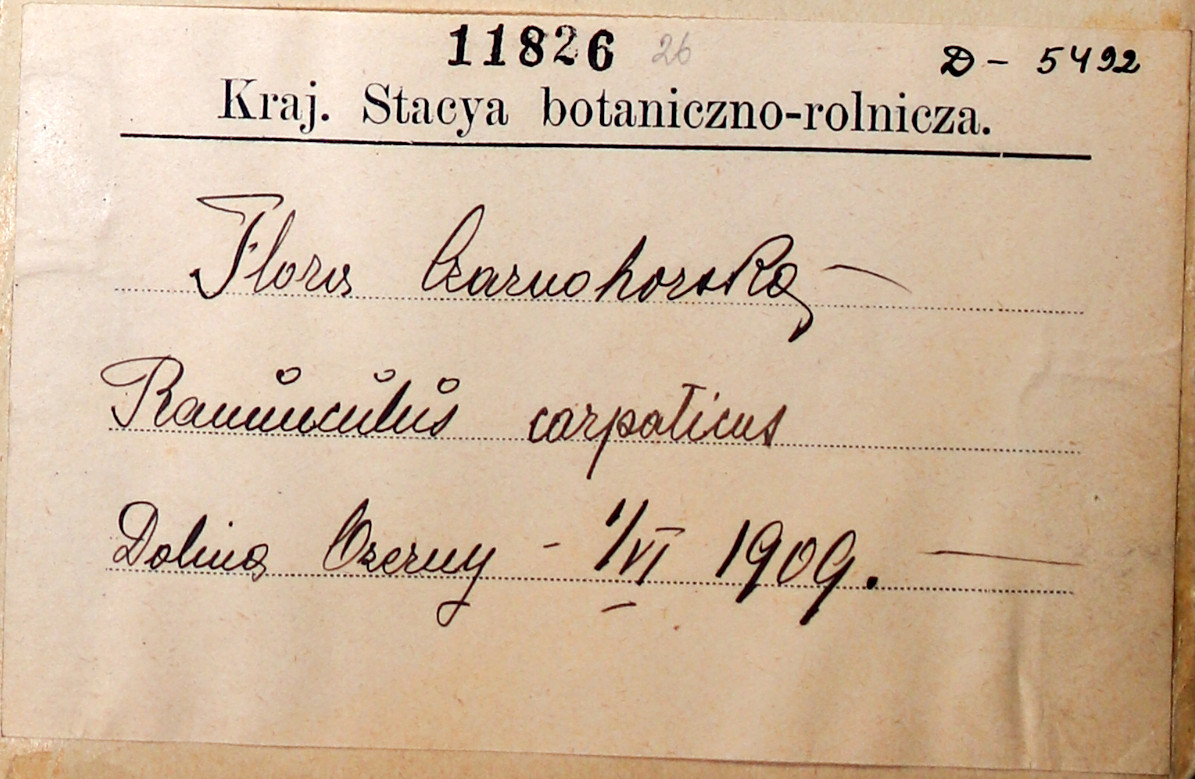 11826 26 D - 5492
Kraj. Stacya botaniczno-rolnicza.
Flora Czarnohorska —
Ranunculus carpaticus
Dolina Czerny - 1/VI 1909. —